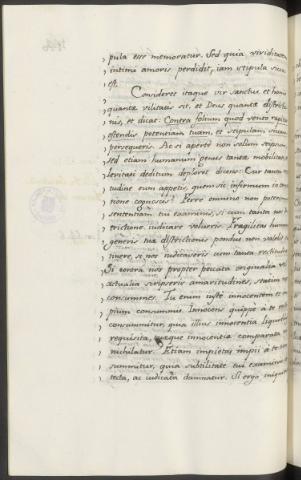 pula esse memoratur. Sed quia viriditatem
intimi amoris perdidit, iam stipula sicca
est.
Consideret itaque vir sanctus et homo
quantæ vilitatis sit, et Deus quantæ
nis, et dicat: Contra folium quod vento rapitur
ostendis potentiam tuam, et stipulam siccam
persequeris. Ac si apertè non solum
sed etiam humanum genus tanta mobilitate
levitati deditum deploret dicens: Cur tanta
tudine eum appetis, quem sic infirmum in
ione cognoscis? Ferre enim non potest
sententiam tui examinis, si eum tanta
trictione iudicare volueris. Fragilitas humani
generis tuæ districtionis pondus non valet
tinere, se nos iudicaveris cum tanta rectitudine
Si contra nos propter peccata originalia vel
actualia scripseris amaritudines, statim
consummes. Tu enim iuste innocentem et
pium consummis. Innocens quippe à te
consummitur, quia illius innocentia
requisita, tuæque innocentiæ comparata
nubilatur. Etiam impietas impii à te
summitur, quia subtilitate tui examinis
tecta, ac iudicata damnatur. Si ergo